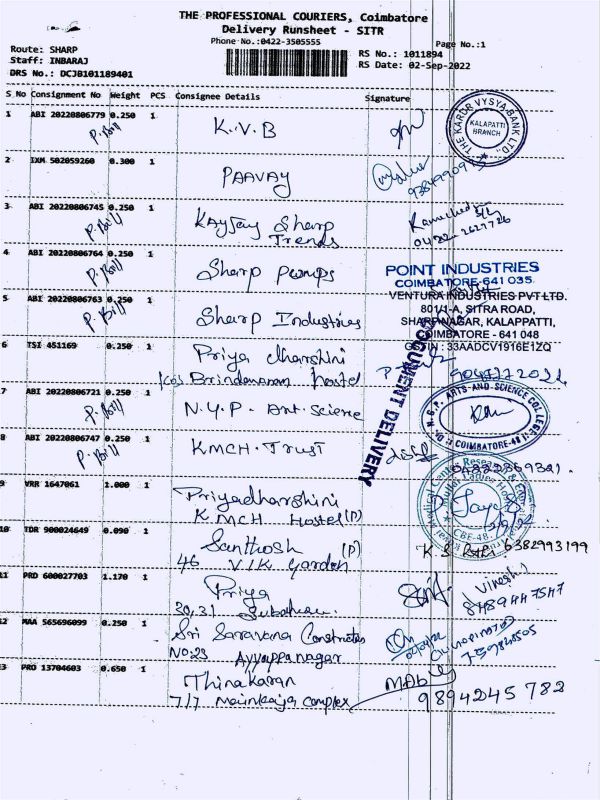 THE PROFESSIONAL COURIERS, Coimbatore
Delivery Runsheet - SITR
Phone No.:0422-3505555
Page No.:1
Route: SHARP
Staff: INBARAJ
DRS No.: DCJB101189401
RS No.: 1011894
RS Date: 02-Sep-2022
S No Consignment No Weight PCS Consignee Details Signature
1 ABI 20220806779 0.250 1 K.V.B
P.Bill
THE KARUR VYSYA BANK LTD.,
KALAPATTI
BRANCH
2 IXM 502059260 0.300 1 PAAVAY
3 ABI 20220806745 0.250 1 Kayjay Sharp
P.Bill Trends
0422-2627726
4 ABI 20220806764 0.250 1 Sharp pumps
P.Bill
POINT INDUSTRIES
COIMBATORE-641 035
5 ABI 20220806763 0.250 1 Sharp Industries
P.Bill
VENTURA INDUSTRIES PVT LTD.
801/1-A, SITRA ROAD,
SHARP NAGAR, KALAPPATTI,
COIMBATORE - 641 048
GSTIN : 33AADCV1916E1ZQ
DOCUMENT DELIVERY
6 TSI 451169 0.250 1 Priya dharshini
Brindavanam hostel
7 ABI 20220806721 0.250 1 N.G.P. Art. Science
P.Bill
N.G.P. ARTS AND SCIENCE COLLEGE
COIMBATORE-48
8 ABI 20220806747 0.250 1 KMCH. Trust
P.Bill
9 VRR 1647061 1.000 1 Priyadharshini
KMCH Hostel (P)
CBE-48
10 TDR 900024649 0.090 1 Santhosh (P)
46 V.I.K Garden
6382993199
11 PRO 600027703 1.170 1 Priya
30,31
Vinesh
8489447547
12 MAA 565696099 0.250 1 Sri Saravana
NO:23 Ayyappa nagar
13 PRO 13704603 0.650 1 Thinakaran
7/7 complex
9894245782